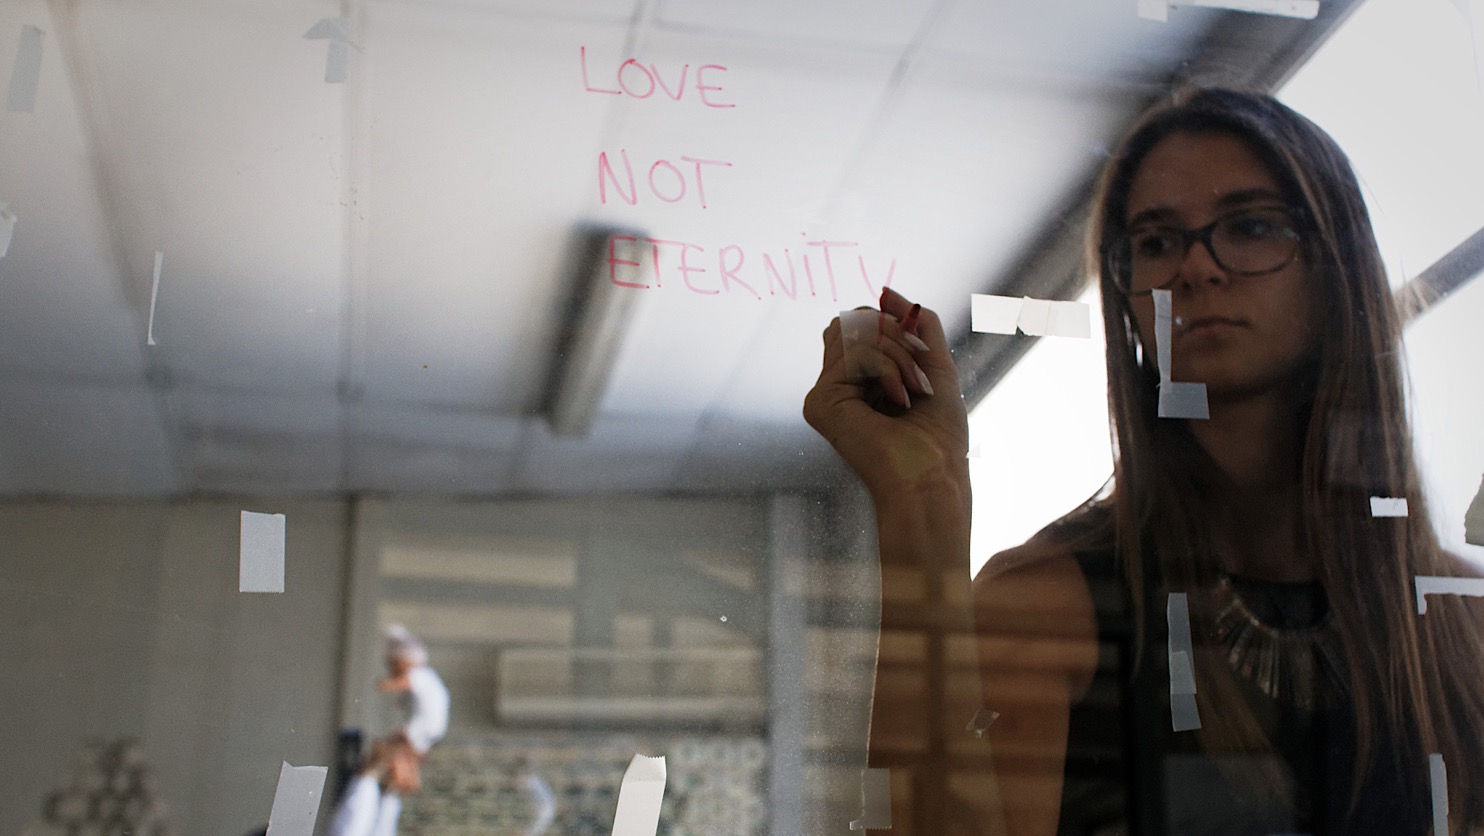 LOVE
NOT
ETERNITY